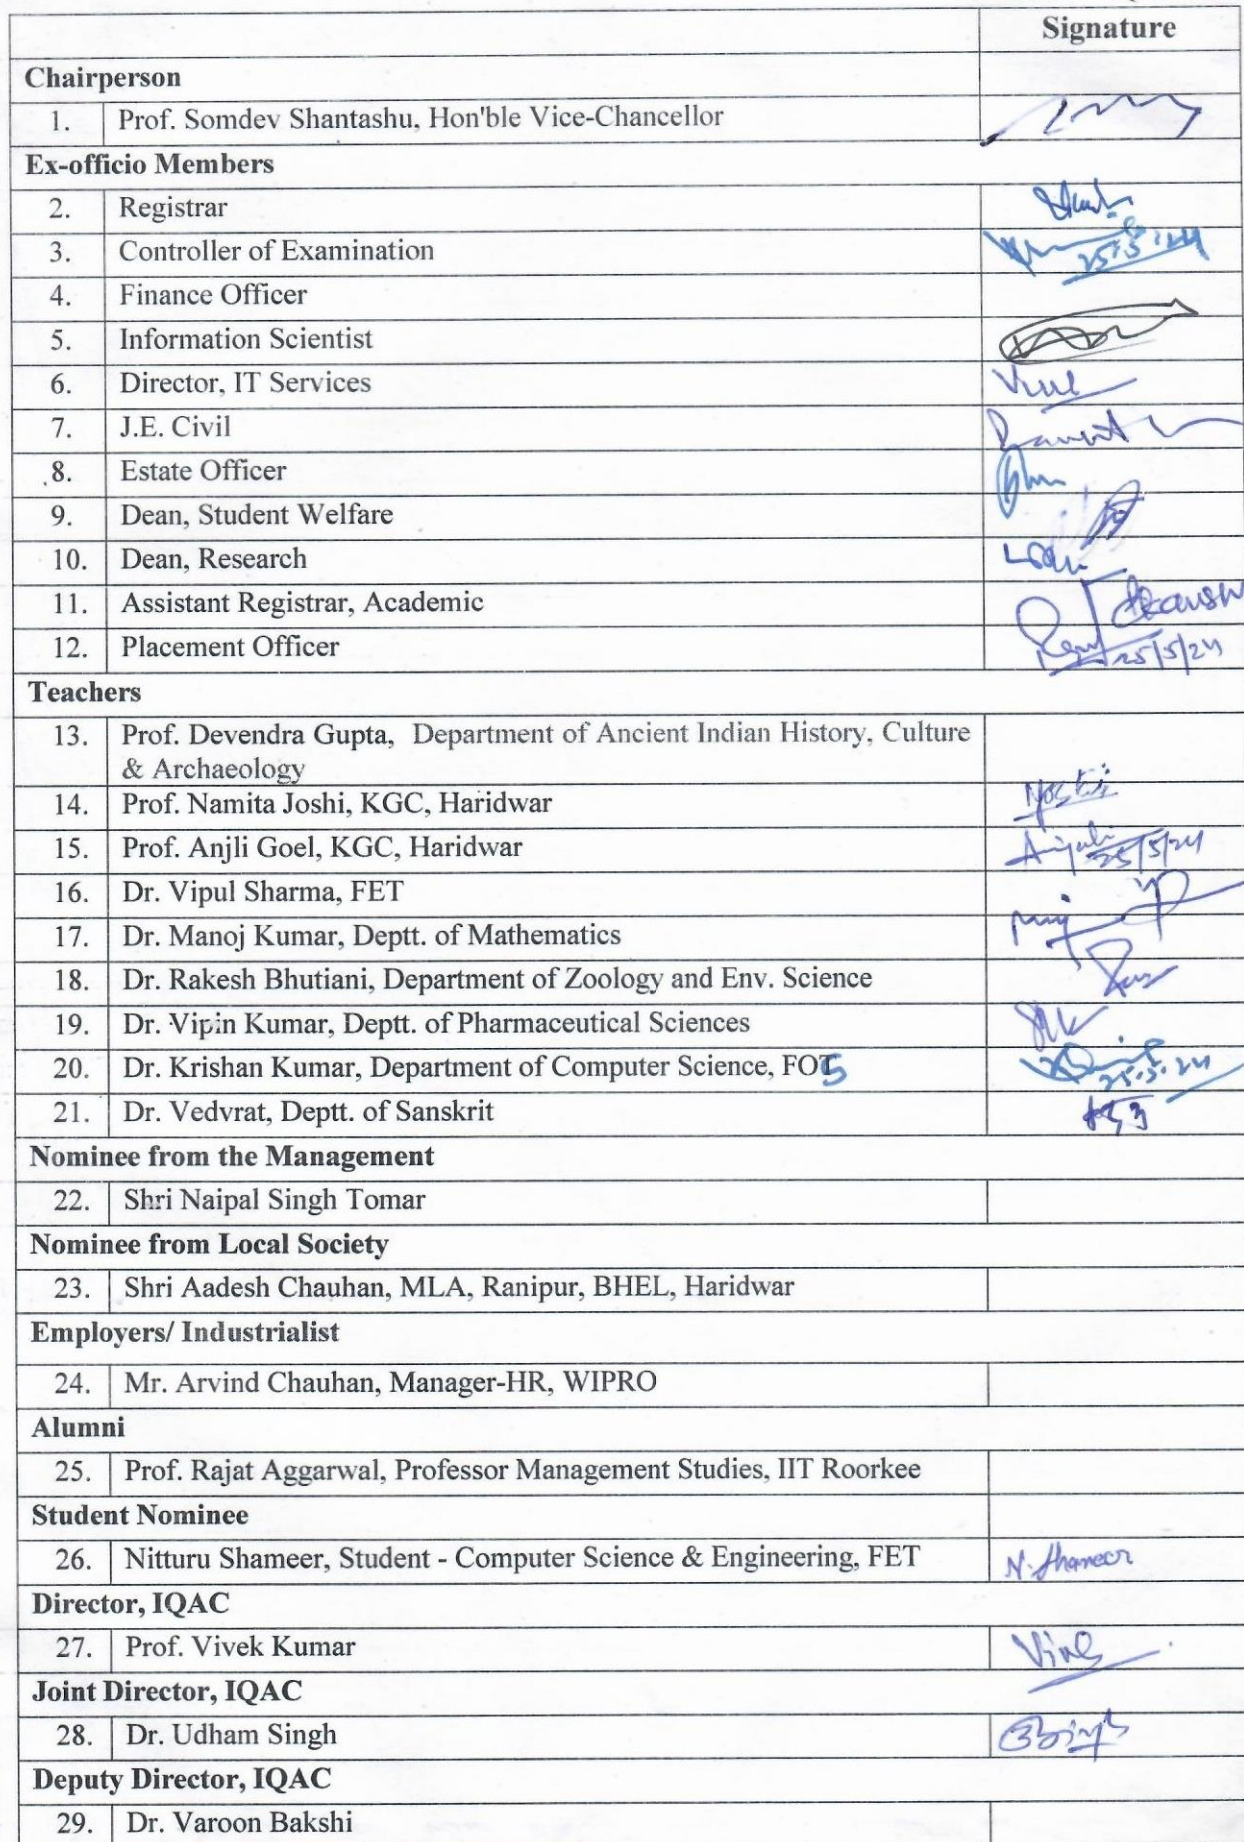 Signature
Chairperson
1. Prof. Somdev Shantashu, Hon'ble Vice-Chancellor
Ex-officio Members
2. Registrar
3. Controller of Examination 25.5.24
4. Finance Officer
5. Information Scientist
6. Director, IT Services
7. J.E. Civil
8. Estate Officer
9. Dean, Student Welfare
10. Dean, Research
11. Assistant Registrar, Academic
12. Placement Officer 25/5/24
Teachers
13. Prof. Devendra Gupta, Department of Ancient Indian History, Culture
& Archaeology
14. Prof. Namita Joshi, KGC, Haridwar
15. Prof. Anjli Goel, KGC, Haridwar Anjali 25/5/24
16. Dr. Vipul Sharma, FET
17. Dr. Manoj Kumar, Deptt. of Mathematics
18. Dr. Rakesh Bhutiani, Department of Zoology and Env. Science
19. Dr. Vipin Kumar, Deptt. of Pharmaceutical Sciences
20. Dr. Krishan Kumar, Department of Computer Science, FOS 25.5.24
21. Dr. Vedvrat, Deptt. of Sanskrit
Nominee from the Management
22. Shri Naipal Singh Tomar
Nominee from Local Society
23. Shri Aadesh Chauhan, MLA, Ranipur, BHEL, Haridwar
Employers/ Industrialist
24. Mr. Arvind Chauhan, Manager-HR, WIPRO
Alumni
25. Prof. Rajat Aggarwal, Professor Management Studies, IIT Roorkee
Student Nominee
26. Nitturu Shameer, Student - Computer Science & Engineering, FET N. Shameer
Director, IQAC
27. Prof. Vivek Kumar
Joint Director, IQAC
28. Dr. Udham Singh
Deputy Director, IQAC
29. Dr. Varoon Bakshi